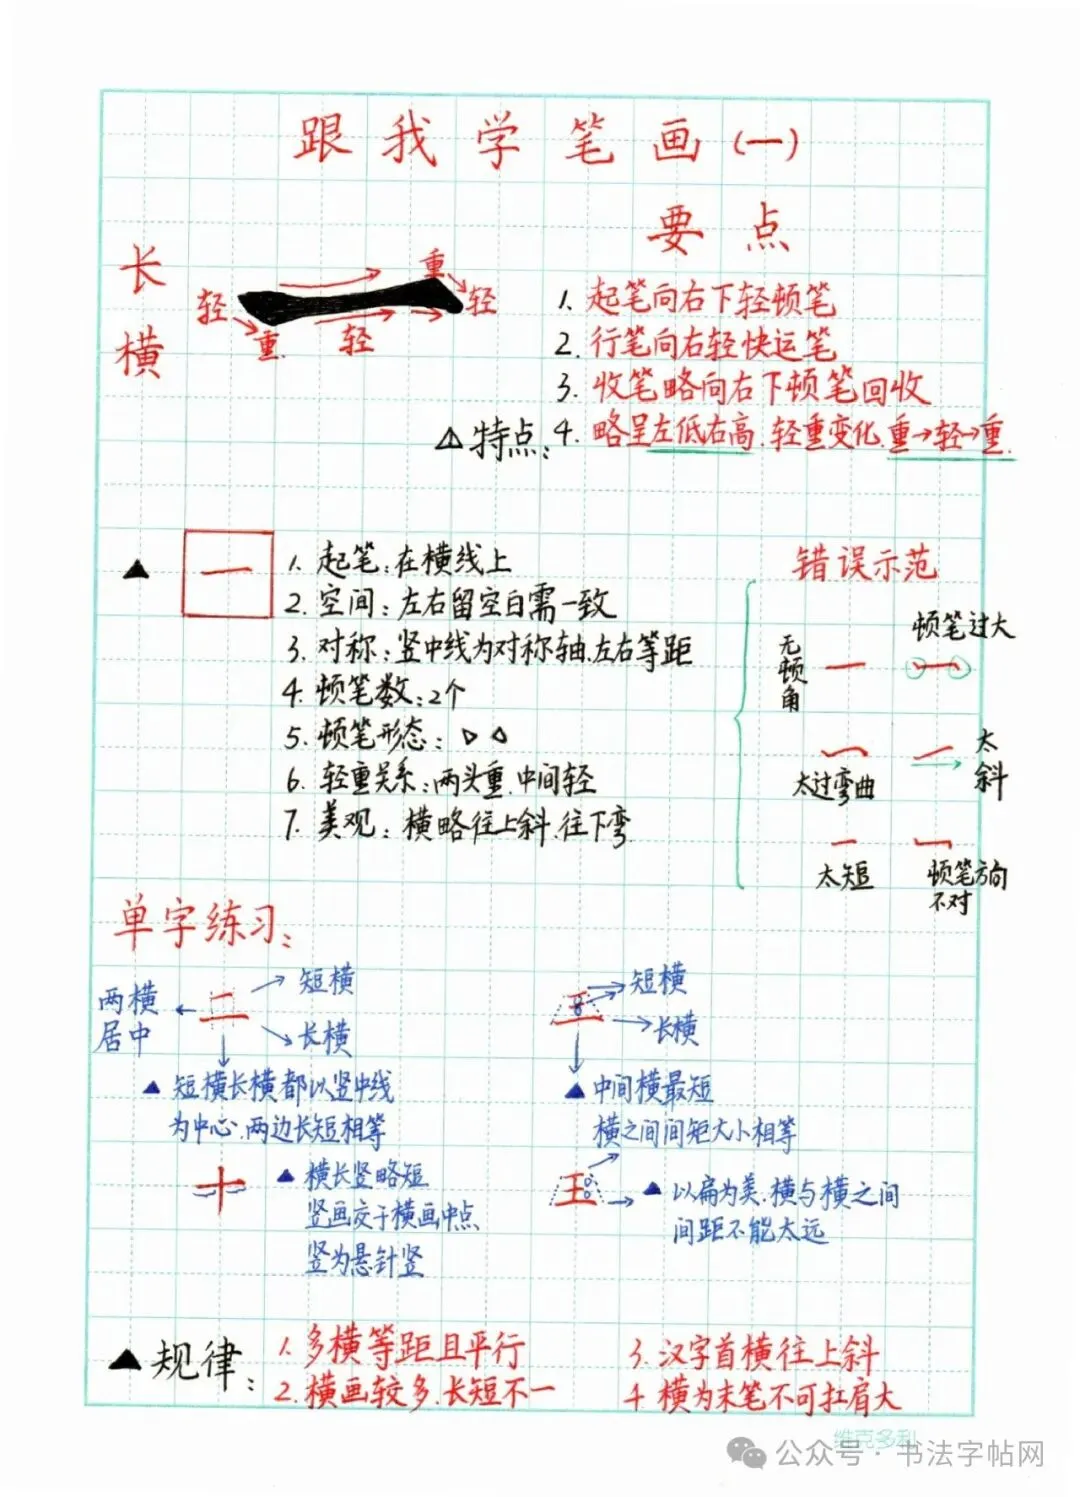 跟我学笔画(一)
长横
轻
重
轻
重
轻
要点
1. 起笔向右下轻顿笔
2. 行笔向右轻快运笔
3. 收笔略向右下顿笔回收
特点:
4. 略呈左低右高.轻重变化.重→轻→重.
一
1. 起笔:在横线上
2. 空间:左右留空白需一致
3. 对称:竖中线为对称轴.左右等距
4. 顿笔数:2个
5. 顿笔形态:
6. 轻重关系:两头重.中间轻
7. 美观:横略往上斜.往下弯.
错误示范
无顿角
顿笔过大
太过弯曲
太斜
太短
顿笔方向
不对
单字练习:
两横
居中
二
短横
长横
短横长横都以竖中线
为中心.两边长短相等
三
短横
长横
中间横最短
横之间间距大小相等
十
横长竖略短
竖画交于横画中点
竖为悬针竖
王
以扁为美.横与横之间
间距不能太远
规律:
1. 多横等距且平行
2. 横画较多.长短不一
3. 汉字首横往上斜
4. 横为末笔不可扛肩大
维克多利
公众号 · 书法字帖网